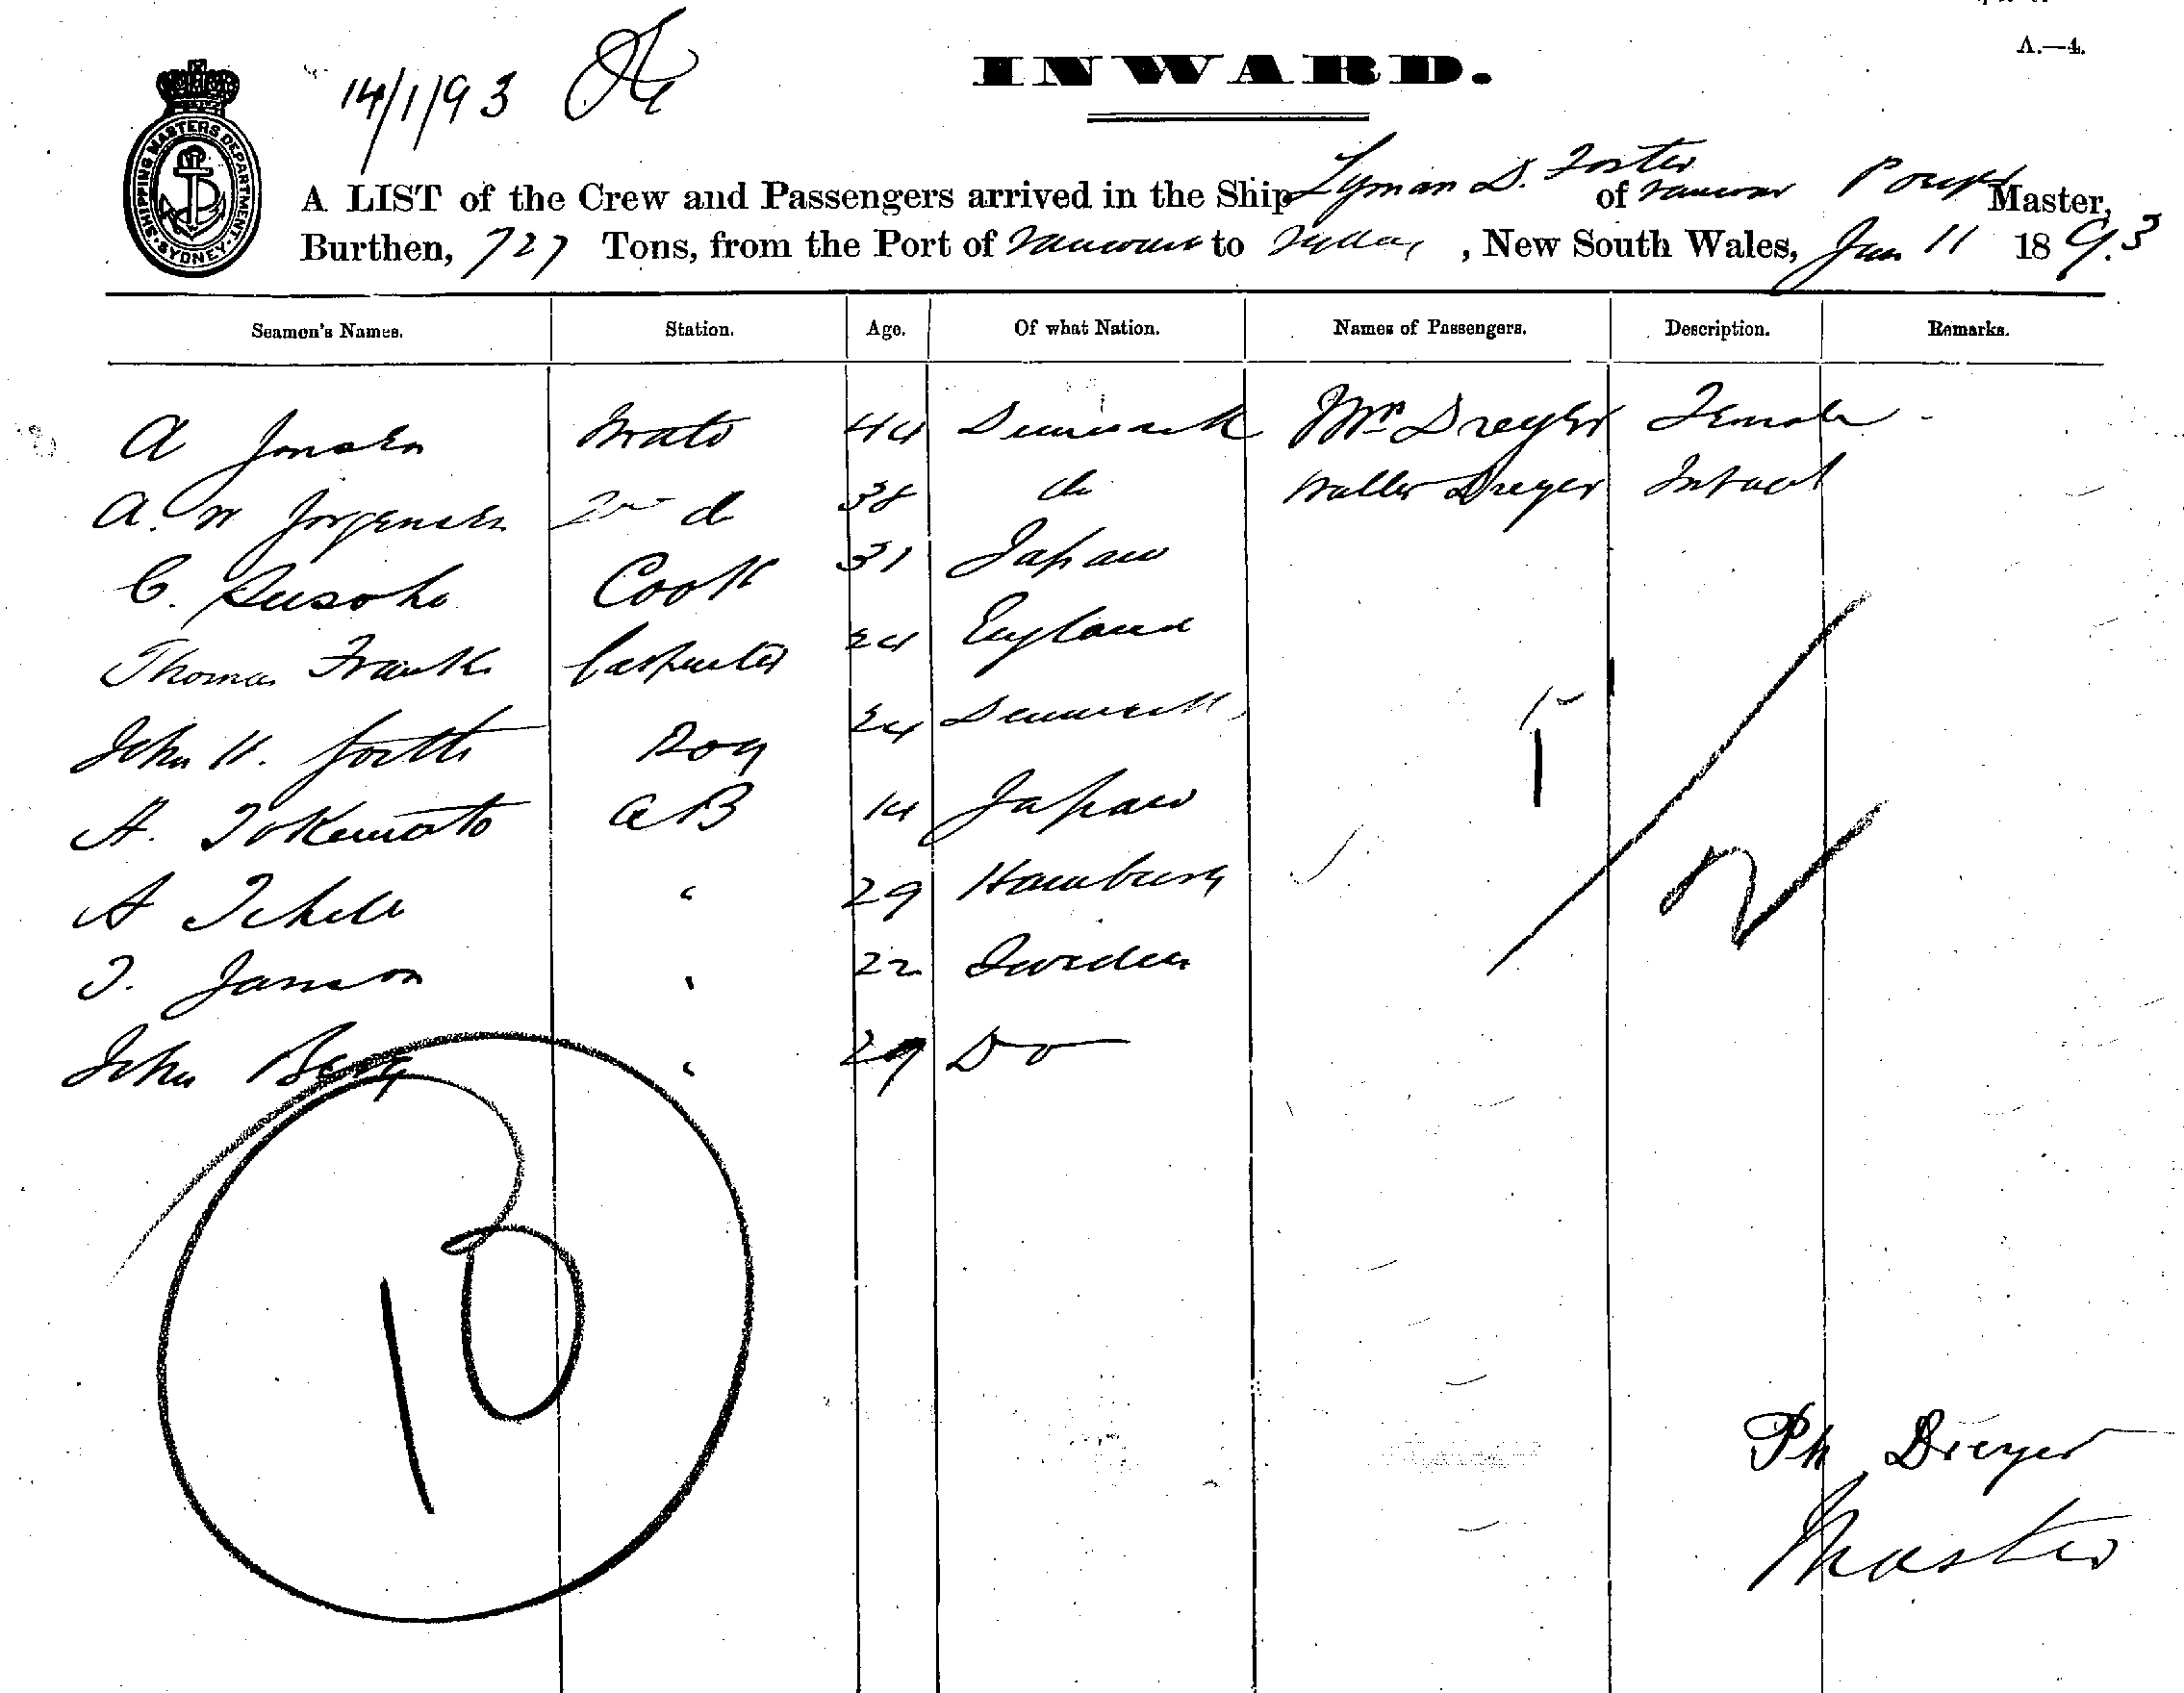 14/1/93
INWARD.
A.—4.
SHIPPING MASTERS DEPARTMENT · SYDNEY
A LIST of the Crew and Passengers arrived in the Ship Lyman D. Foster of Master,
Burthen, 727 Tons, from the Port of to , New South Wales, Jan 11 1893
Seamen's Names. Station. Age. Of what Nation. Names of Passengers. Description. Remarks.
A Jensen Mate 44 Denmark Mrs Dreyer Female
A. W Jorgensen 2nd do 38 do Walter Dreyer Infant
C. 31 Japan Cook
Thomas Frank Carpenter 24 England
John H. Boy 24 Denmark
A. AB 14 Japan
A " 29 Hamburg
J. Janson " 22 Sweden
John Berg " 29 Do
10
2
Ph Dreyer
Master